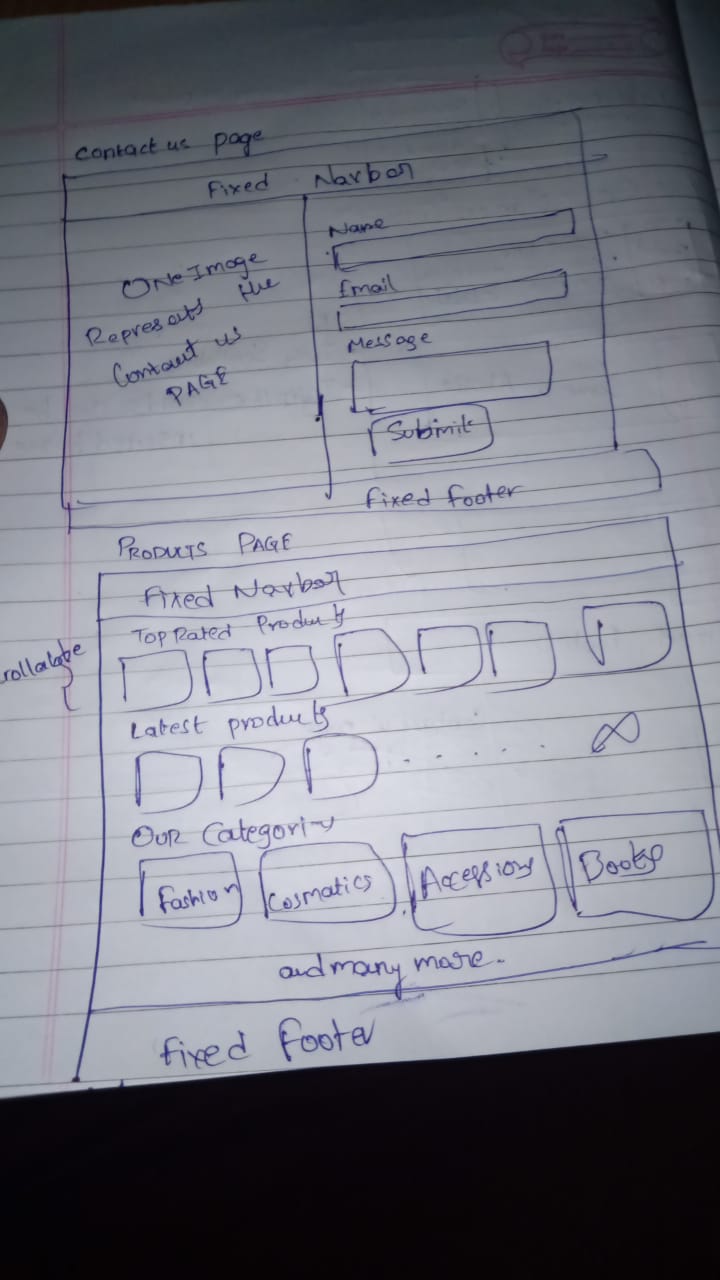 Contact us page
Fixed Navbar
One Image
Represents the
Contact us
PAGE
Name
Email
Message
Submit
fixed footer
PRODUCTS PAGE
Fixed Navbar
Top Rated Products
rollalabe
Latest products
∞
OUR Categoris
Fashion
Cosmatics
Accessiory
Books
and many more.
fixed footer